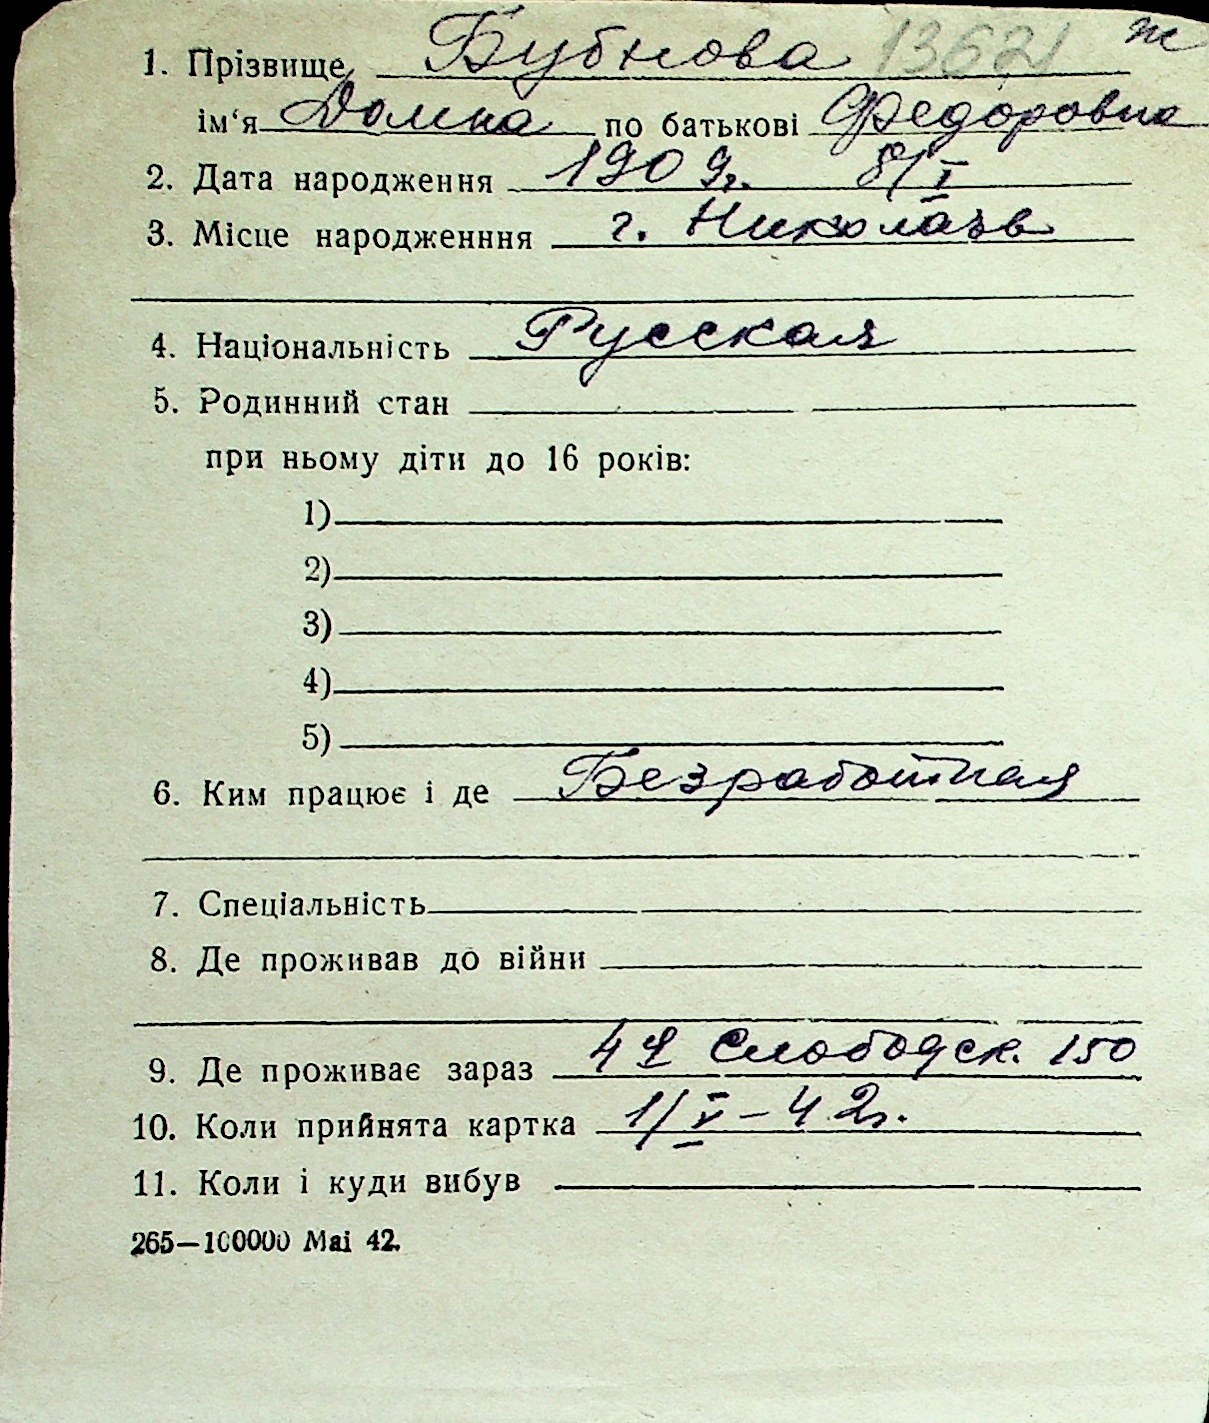 1. Прізвище Бубнова 13621 ж
ім‘я Домна по батькові Федоровна
2. Дата народження 1909г. 8/I
3. Місце народженння г. Николаев
4. Національність Русская
5. Родинний стан
при ньому діти до 16 років:
1)
2)
3)
4)
5)
6. Ким працює і де Безработная
7. Спеціальність
8. Де проживав до війни
9. Де проживає зараз 4я Слободск. 150
10. Коли прийнята картка 1/V – 42г.
11. Коли і куди вибув
265—100000 Mai 42.